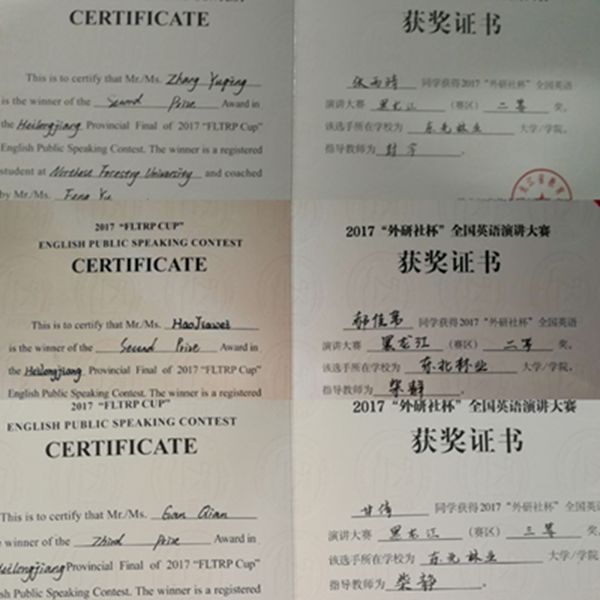 CERTIFICATE
This is to certify that Mr./Ms. Zhang Yuqing
is the winner of the Second Prize Award in
the Heilongjiang Provincial Final of 2017 "FLTRP Cup"
English Public Speaking Contest. The winner is a registered
student at Northeast Forestry University and coached
by Mr./Ms.
获奖证书
张雨晴 同学获得2017 "外研社杯" 全国英语
演讲大赛 黑龙江 (赛区) 二等 奖。
该选手所在学校为 东北林业 大学/学院。
指导教师为 封宇 。
2017 "FLTRP CUP"
ENGLISH PUBLIC SPEAKING CONTEST
CERTIFICATE
This is to certify that Mr./Ms. Hao Jiawei
is the winner of the Second Prize Award in
the Heilongjiang Provincial Final of 2017 "FLTRP Cup"
English Public Speaking Contest. The winner is a registered
2017 "外研社杯" 全国英语演讲大赛
获奖证书
郝佳苇 同学获得2017 "外研社杯" 全国英语
演讲大赛 黑龙江 (赛区) 二等 奖。
该选手所在学校为 东北林业 大学/学院。
指导教师为 柴静 。
2017 "FLTRP CUP"
ENGLISH PUBLIC SPEAKING CONTEST
CERTIFICATE
This is to certify that Mr./Ms. Gan Qian
winner of the Third Prize Award in
Heilongjiang Provincial Final of 2017 "FLTRP Cup"
English Public Speaking Contest. The winner is a registered
2017 "外研社杯" 全国英语演讲大赛
获奖证书
甘倩 同学获得2017 "外研社杯" 全国英
演讲大赛 黑龙江 (赛区) 三等 奖。
该选手所在学校为 东北林业 大学/学院
指导教师为 柴静 。